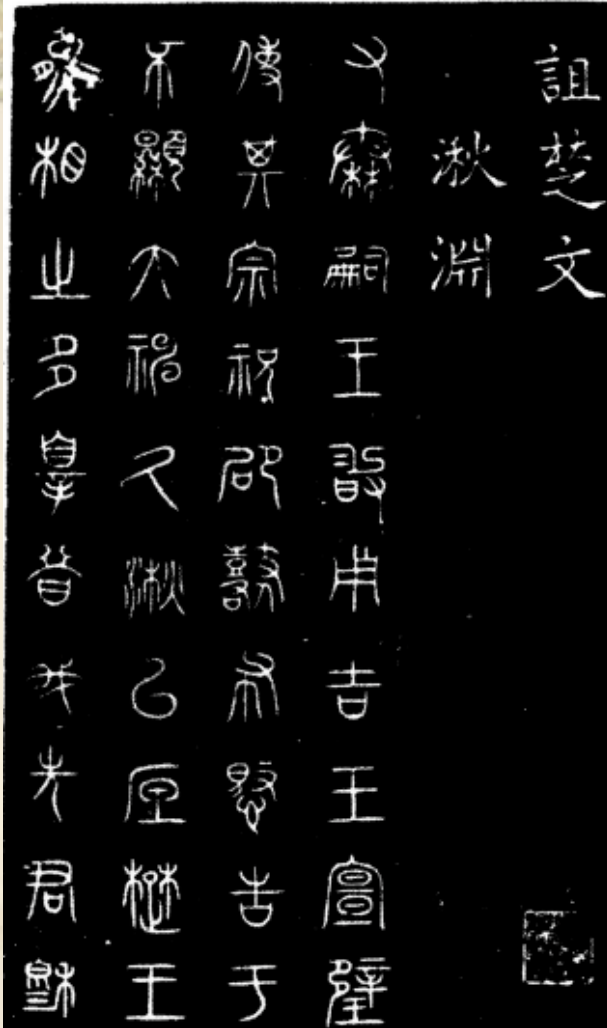 詛楚文
湫淵
又秦嗣王敢用吉玉宣璧
使其宗祝邵鼛布愍告于
不顯大神久湫㠯底楚王
熊相之多辠昔我先君穆